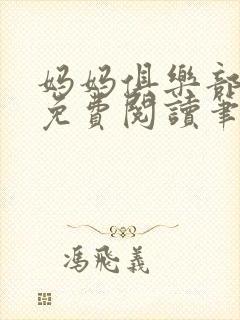 媽媽俱樂部
免費閱讀筆
馮飛義